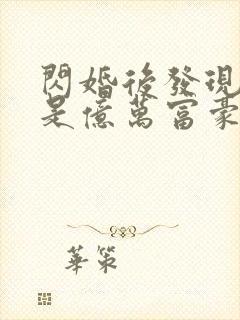 閃婚後發現
是億萬富豪
華策